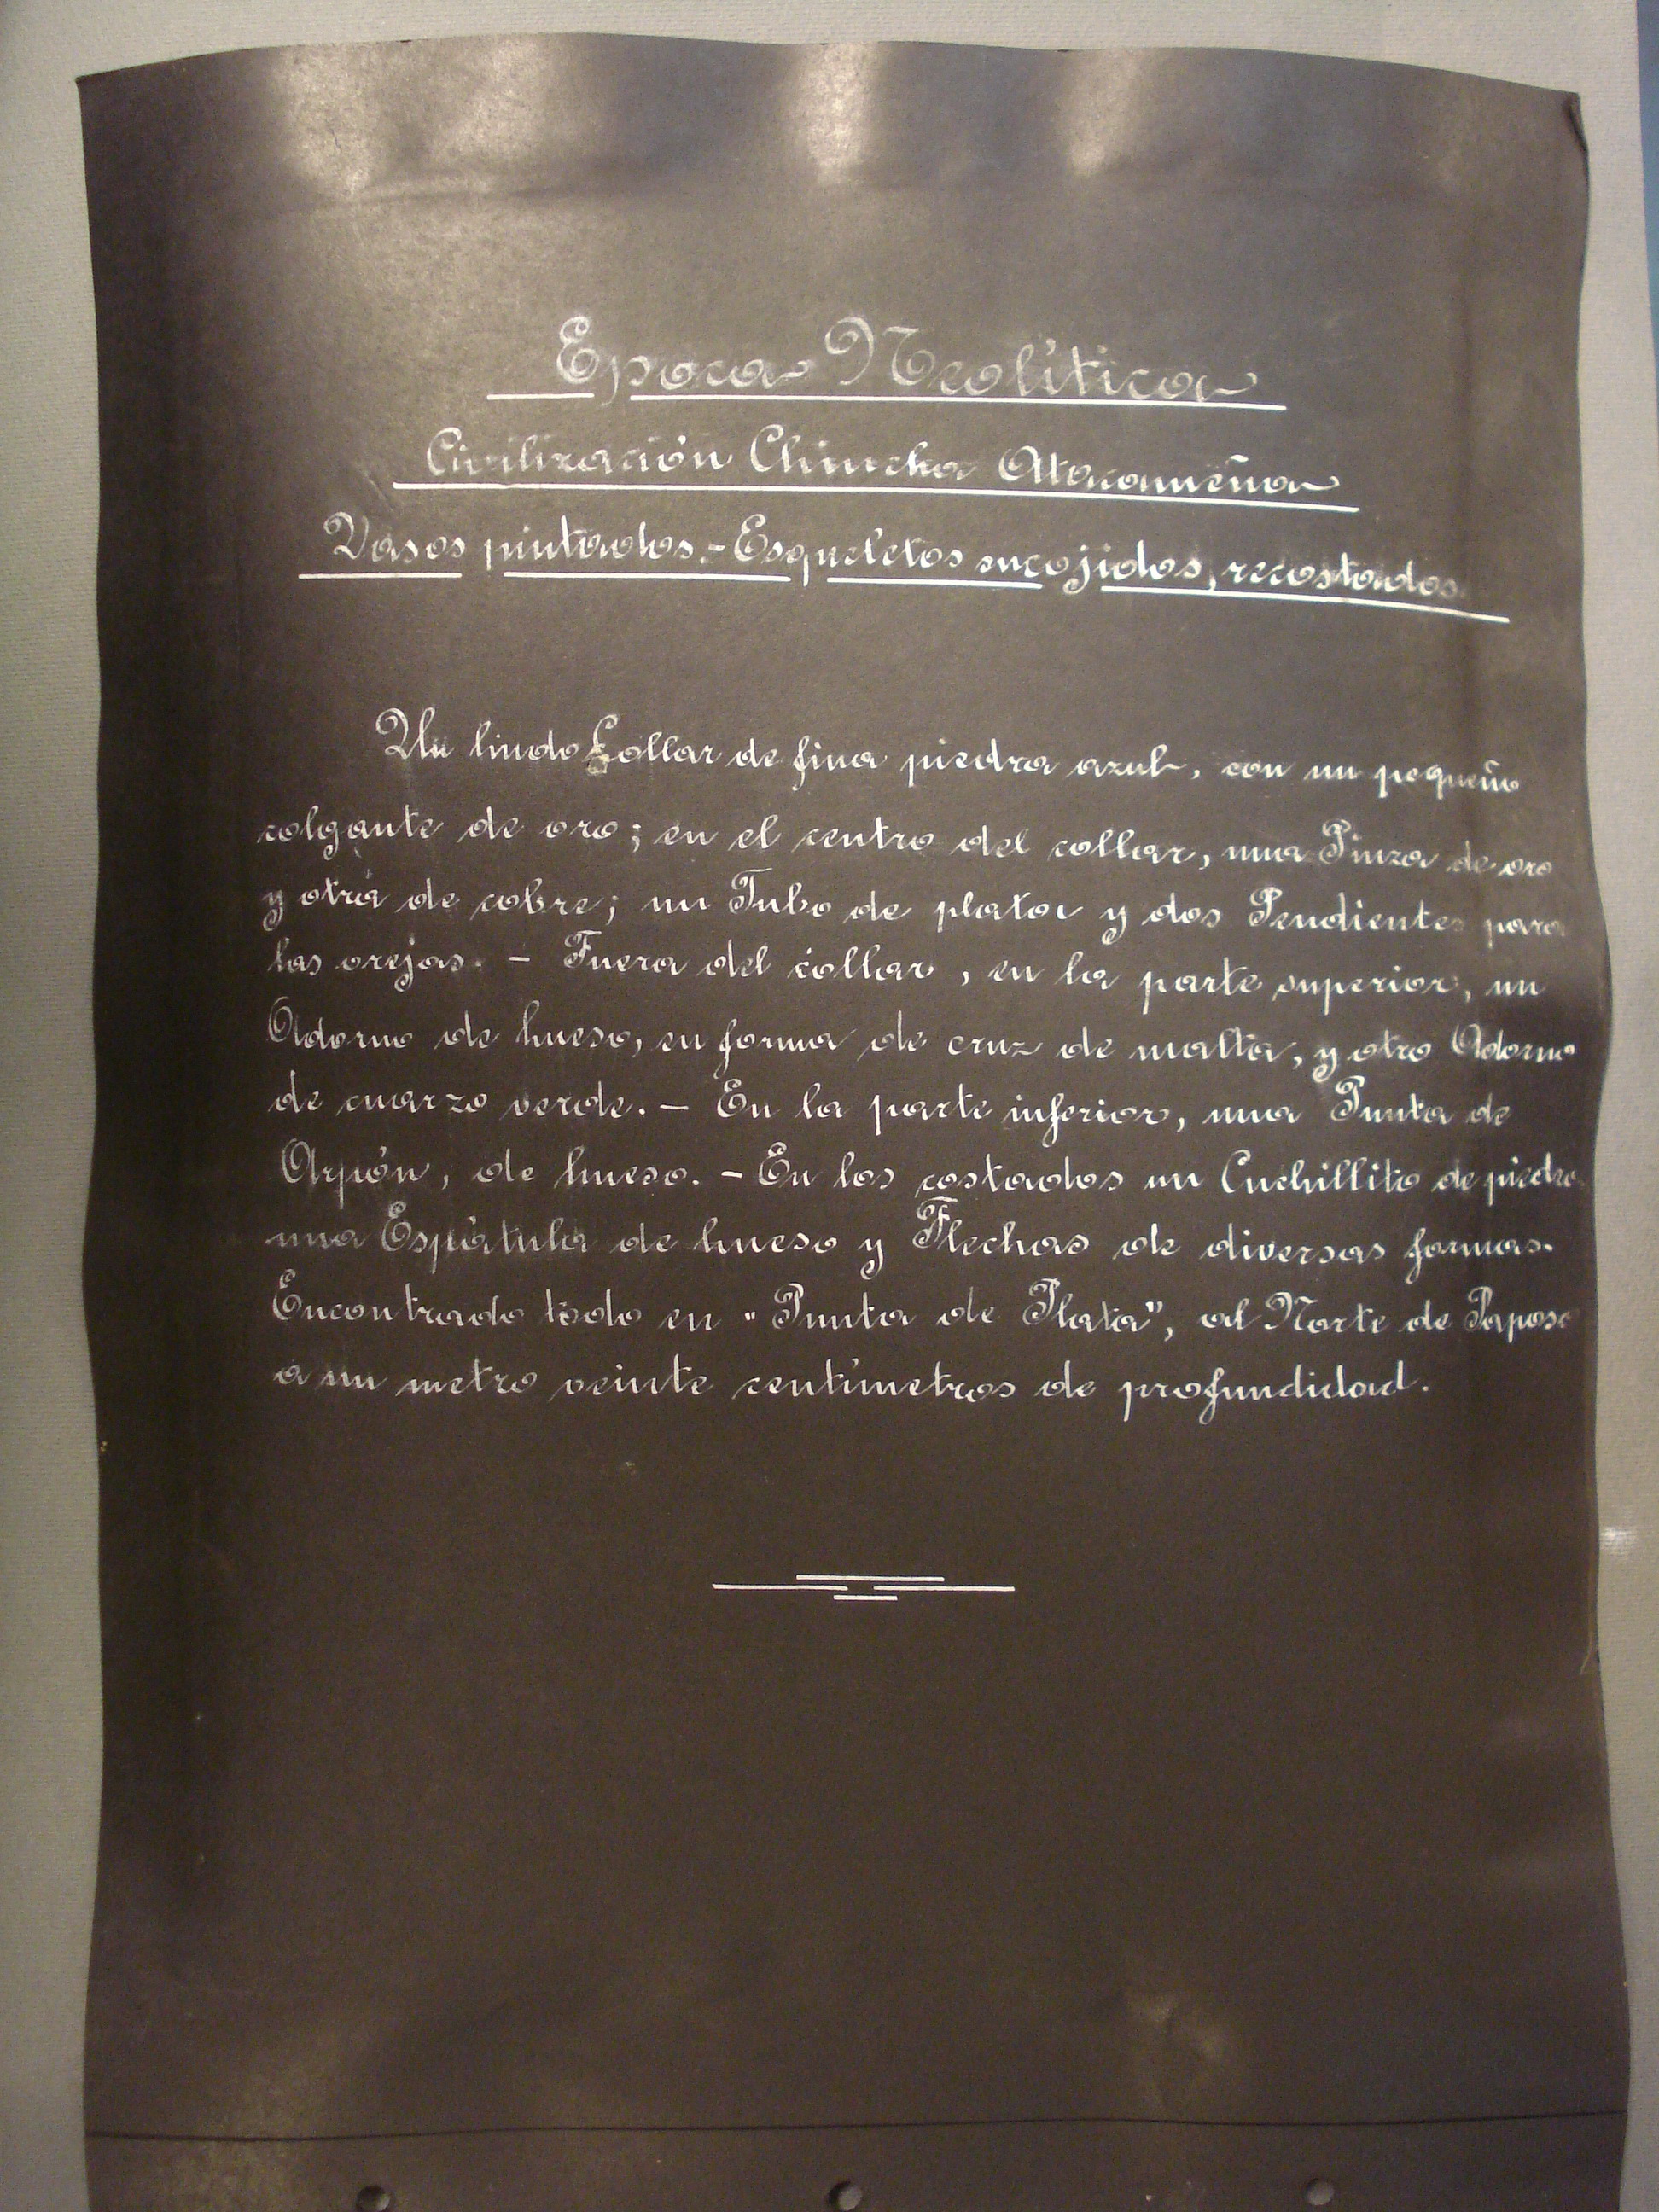 Epoca Neolítica
Civilización Chincha Atacameña
Vasos pintados.- Esqueletos encojidos, recostados.
Un lindo Collar de fina piedra azul, con un pequeño
colgante de oro; en el centro del collar, una Pinza de oro
y otra de cobre; un Tubo de plata y dos Pendientes para
las orejas. - Fuera del collar, en la parte superior, un
Adorno de hueso, en forma de cruz de malta, y otro Adorno
de cuarzo verde. - En la parte inferior, una Punta de
Arpón, de hueso. - En los costados un Cuchillito de piedra
una Espátula de hueso y Flechas de diversas formas.
Encontrado todo en "Punta de Plata", al Norte de Paposo
a un metro veinte centímetros de profundidad.